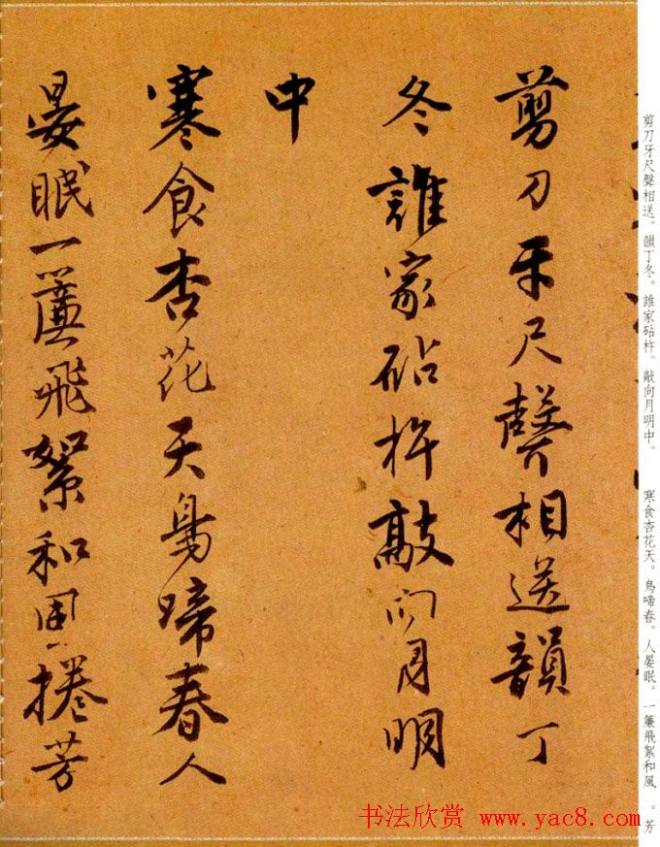 剪刀牙尺聲相送。韻丁冬。誰家砧杵。敲向月明中。 寒食杏花天。鳥啼春。人晏眠。一簾飛絮和風 。芳
剪刀牙尺聲相送韻丁
冬誰家砧杵敲向月明
中
寒食杏花天鳥啼春人
晏眠一簾飛絮和風捲芳
书法欣赏 www.yac8.com